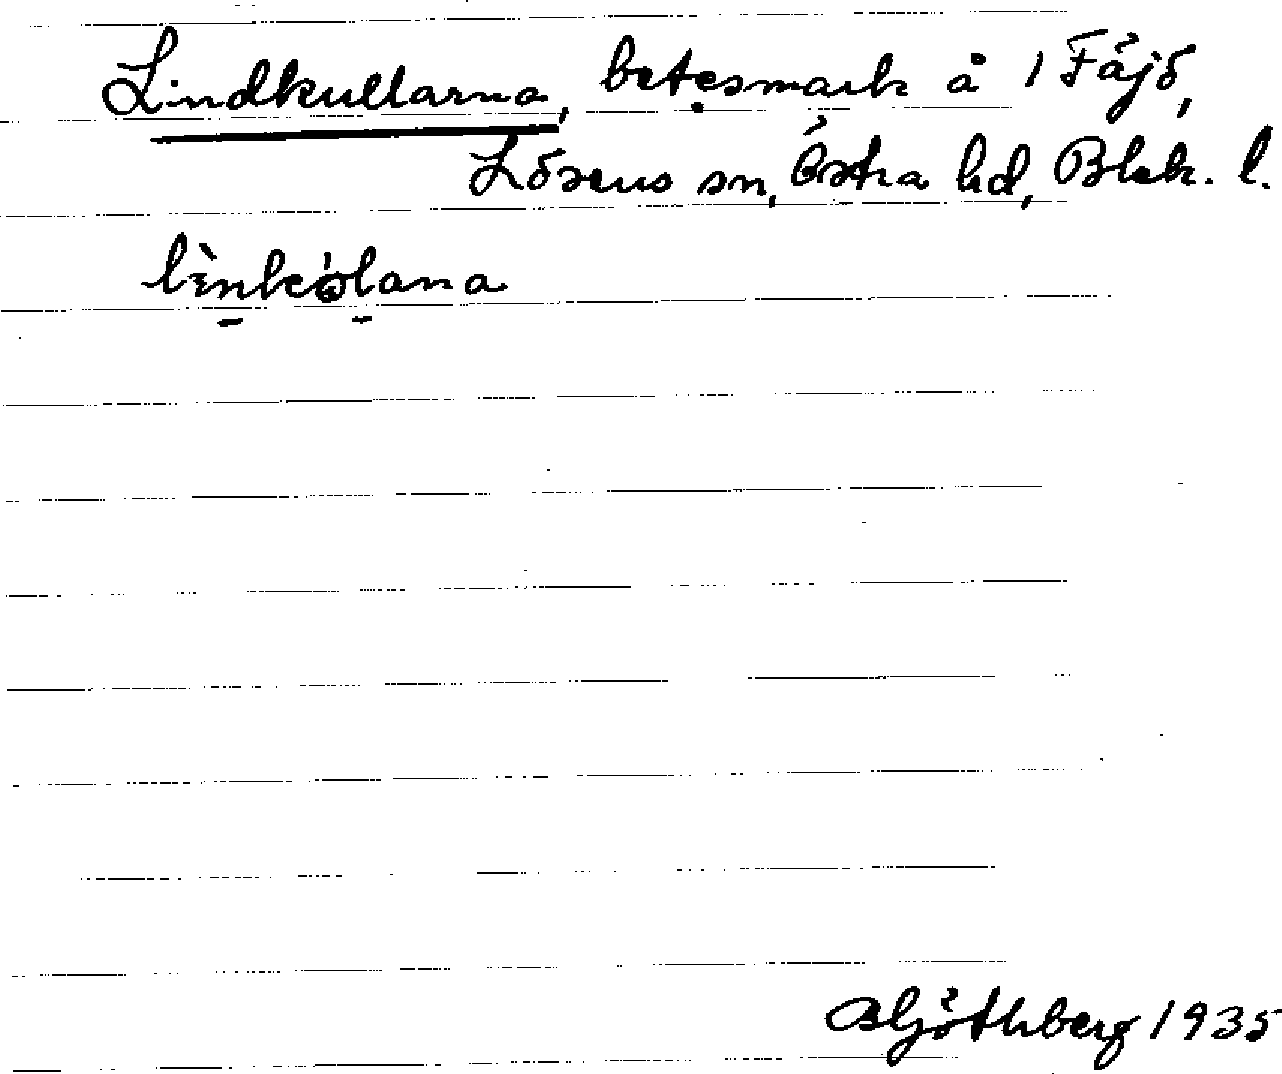 Lindkullarna, betesmark å 1 Fäjö,
Lösens sn, Östra hd, Blek. l.
Göthberg 1935